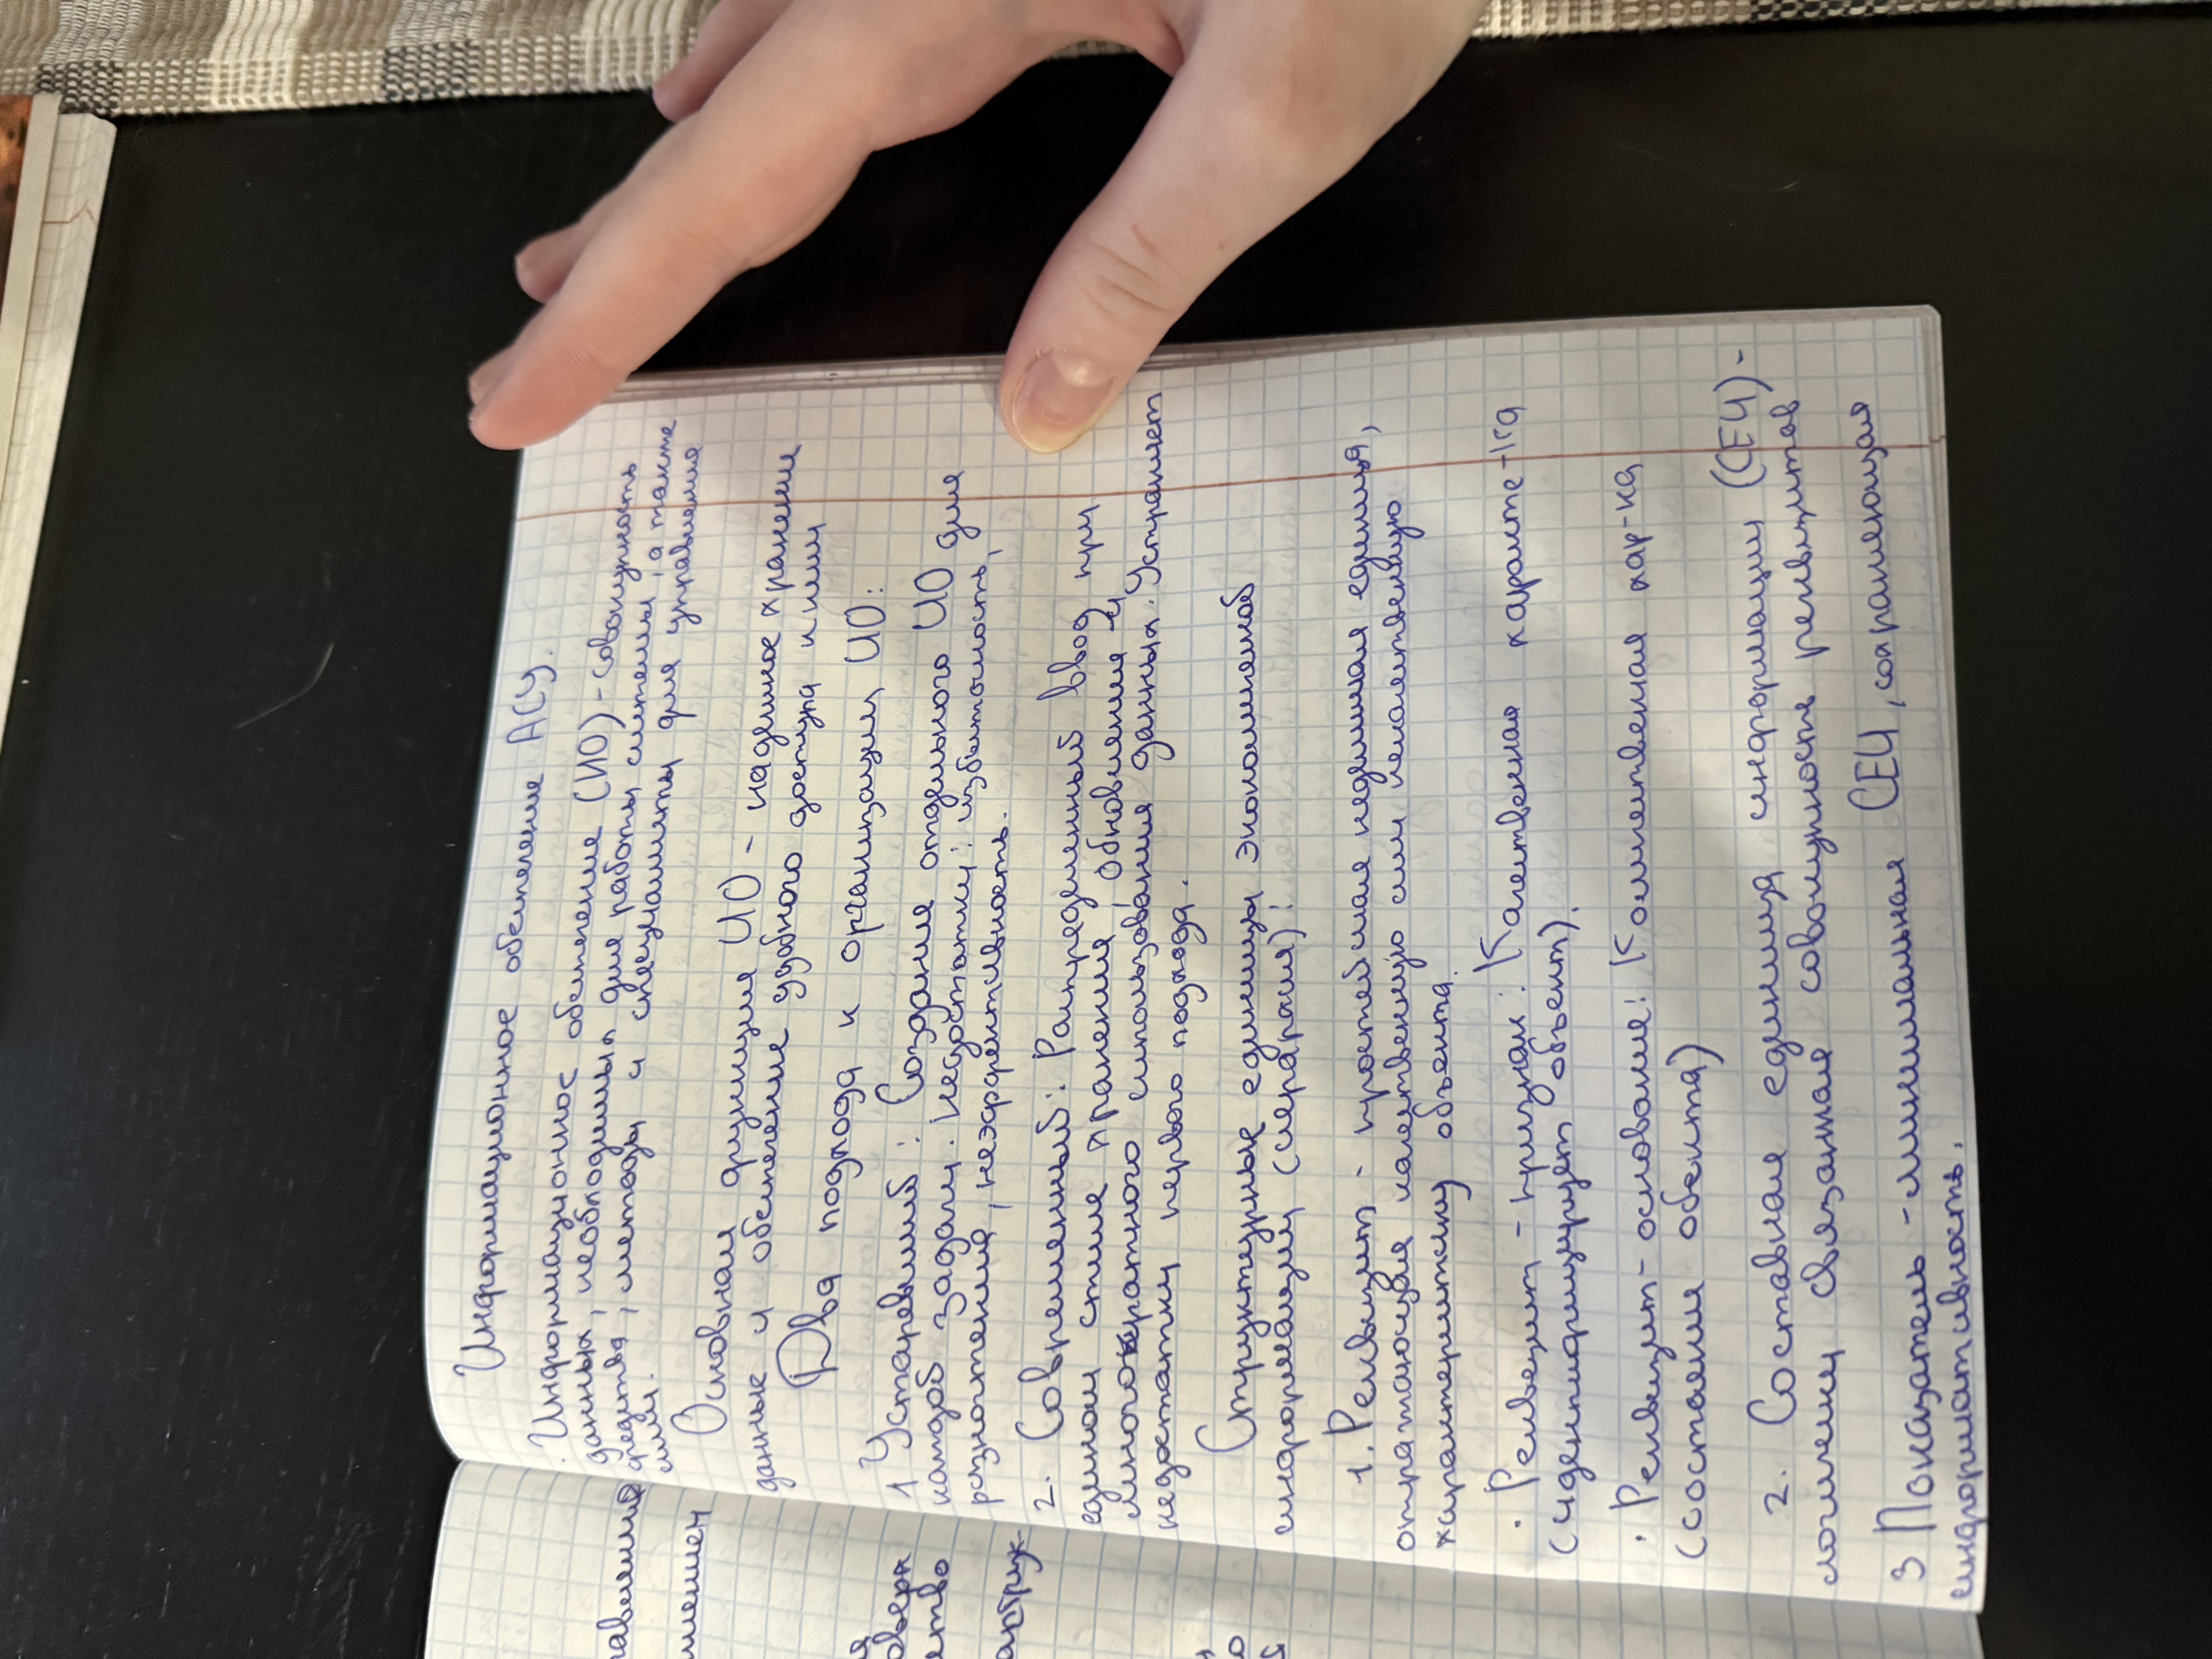 Информационное обеспечение АСУ.
Информационное обеспечение (ИО) - совокупность
данных, необходимых для работы системы, а также
средства, методы и специалисты для управления
ими.
Основная функция ИО - надежное хранение
данные и обеспечение удобного доступа к ним
Два подхода к организации ИО:
1 Устаревший: Создание отдельного ИО для
каждой задачи. Недостатки: избыточность,
разночтения, неэффективность.
2. Современный: Распределенный ввод при
едином стиле хранения, обновления и
многократного использования данных. Устраняет
недостатки первого подхода.
Структурные единицы экономической
информации (иерархия):
1. Реквизит - простейшая неделимая единица,
отражающая качественную или количественную
характеристику объекта.
· Реквизит - признак: Качественная характе-ка
(идентифицирует объект).
· Реквизит - основание: Количественная хар-ка
(состояния объекта)
2. Составная единица информации (СЕИ) -
логически связанная совокупность реквизитов
3 Показатель - минимальная СЕИ, сохраняющая
информативность.